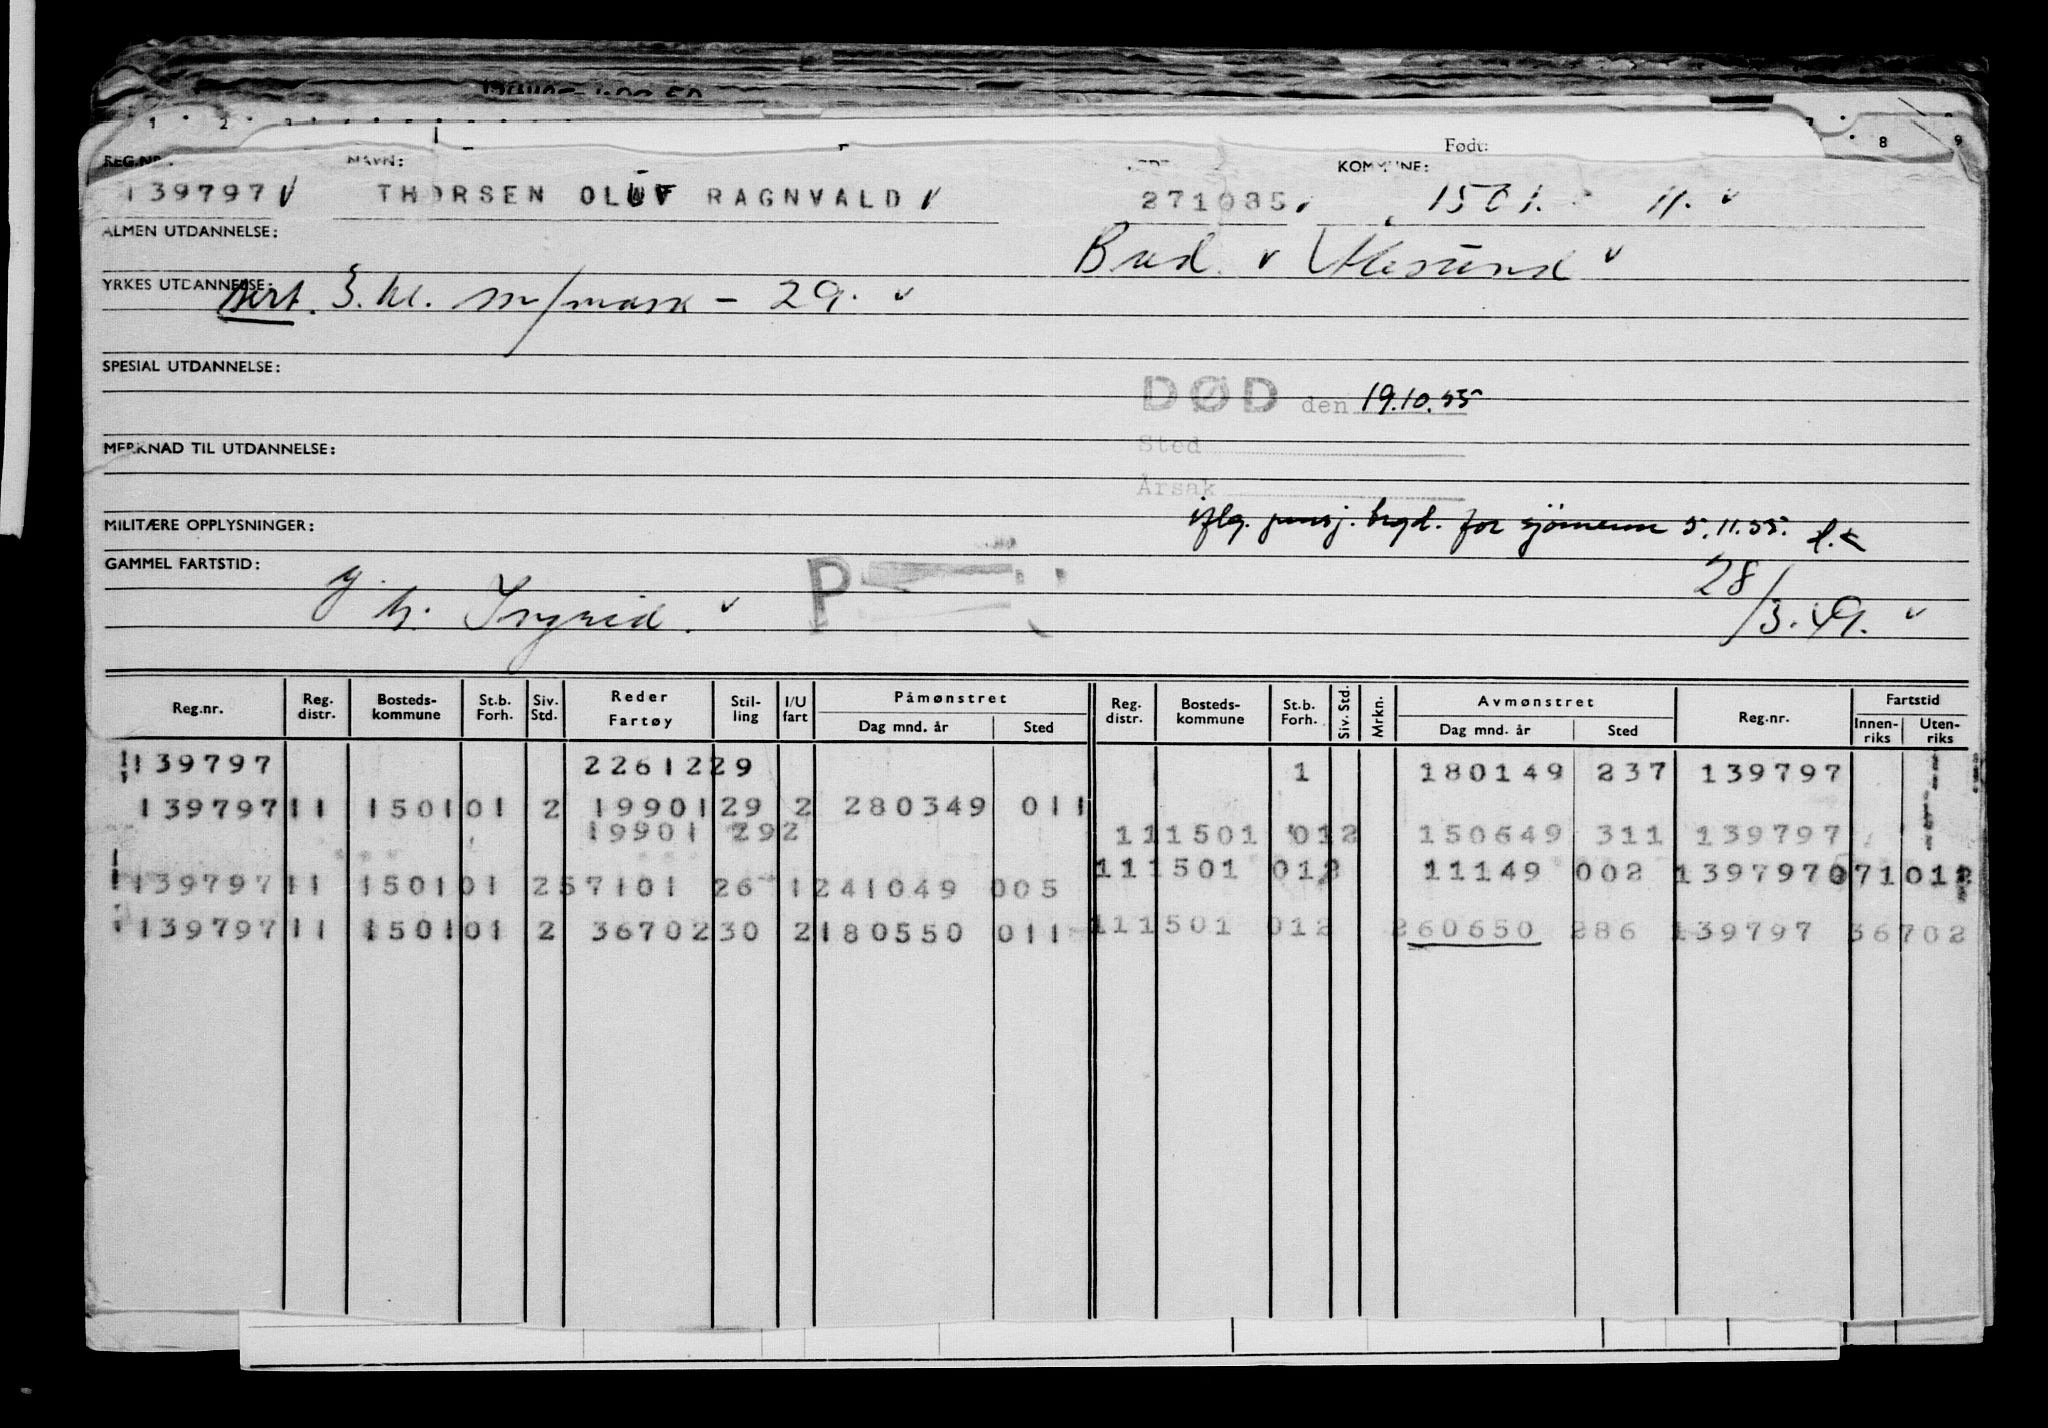 1 2 3 8 9
Født:
REG.NR. NAVN: KOMMUNE:
139797 v THORSEN OLUF RAGNVALD v 271085. 1501. 11. v
ALMEN UTDANNELSE:
Bud. v Ålesund v
YRKES UTDANNELSE:
sert. 3. kl. m/mask - 29. v
SPESIAL UTDANNELSE:
DØD den 19.10.55
MERKNAD TIL UTDANNELSE: Sted
Årsak
MILITÆRE OPPLYSNINGER: iflg. pensj. trygd. for sjömenn 5.11.55.
GAMMEL FARTSTID:
h. Ingrid. v P 28/3.49. v
Reg.nr. Reg. distr. Bosteds-kommune St.b. Forh. Siv. Std. Reder Fartøy Stil-ling I/U fart Påmønstret Dag mnd. år Sted Reg. distr. Bosteds-kommune St.b. Forh. Siv. Std. Mrkn. Avmønstret Dag mnd. år Sted Reg.nr. Fartstid Innen-riks Uten-riks
139797 22612 29 1 180149 237 139797
139797 11 1501 01 2 19901 29 2 280349 011
19901 29 2 11 1501 01 2 150649 311 139797
139797 11 1501 01 2 57101 26 1 241049 005 11 1501 01 2 11149 002 139797 071012
139797 11 1501 01 2 36702 30 2 180550 011 11 1501 01 2 260650 286 139797 36702